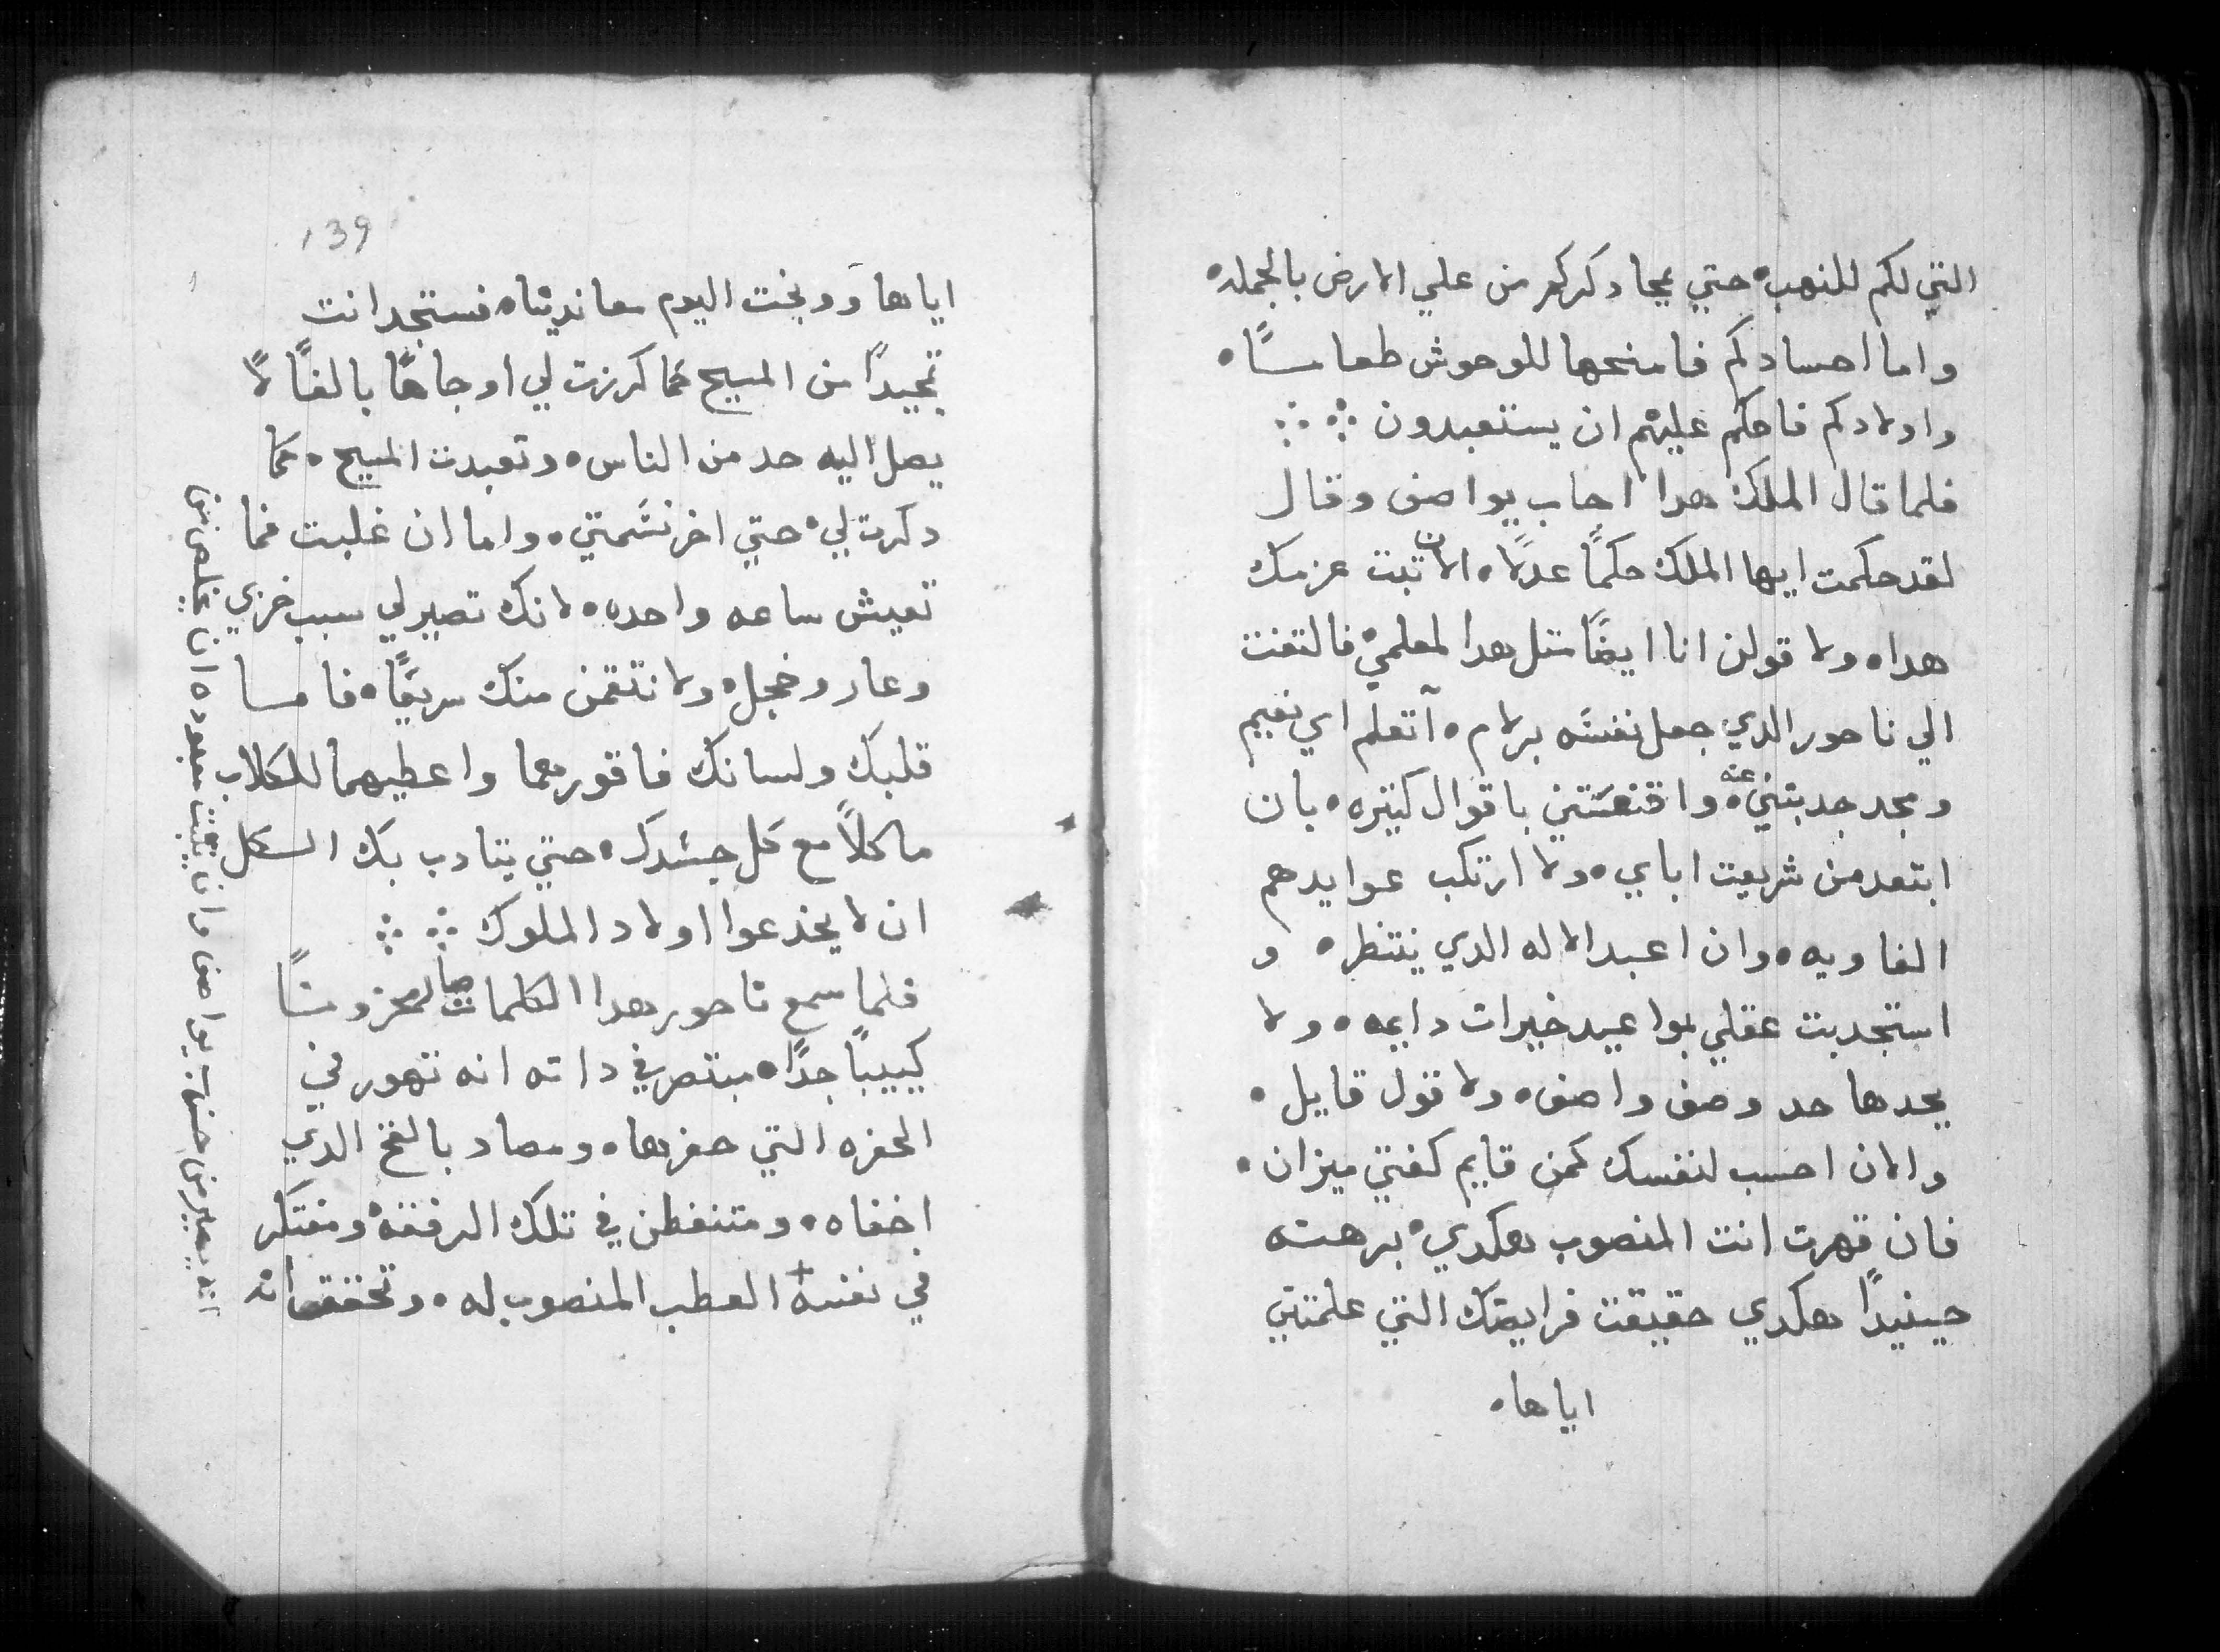 التي لكم للنهب۰ حتي يمحا دكركم من علي الارض بالجمله۰
واما احسادكم فامنحها للوحوش طعامـــًا۰
واولادكم فاحكم عليهم ان يستعبدون ܀ ܀
فلما قال الملك هدا احاب يواصف وقال
لقد حكمت ايها الملك حكمًا عدلًا۰ الان تبت عزمك
هدا۰ ولاقولن انا ايضًا متل هدا لمعلمي۰ فالتفت
الي ناحور الدي جعل نفسَه برلام۰ آتعلم اي نعيم
ومجد جدبتني عنه۰ واقنعَتني باقوال كتيره۰ بان
ابتعد من شريعت اباي۰ ولا ارتكب عوايدهم
الغاويه۰ وان اعبد الاله الدي ينتظر۰ و
استجدبت عقلي بمواعيد خيرات دايمه۰ ولا
يحدها حد وصف واصف۰ ولا قول قايل۰
والان احسب لنفسك كمن قايم كفتي ميزان۰
فان قهرت انت المنصوب هكدي۰ برهنت
حينيدًا هكدي حقيقت فرايضك التي علمتني
اياها۰
139
اياها وَوبخت اليوم معاندينا۰ فستجد انت
تمجيدًا من المسيح كما كرزت لي اوجاهًا بالغًا لا
يصل اليه حد من الناس۰ وتعبدت المسيح۰ كما
دكرت لي۰ حتي اخر نسَمتي۰ واما ان غلبت فما
تعيش ساعه واحده۰ لانك تصير لي سبب خزي
وعار وخجل۰ ولانتقمن منك سريعًا۰ فامسا
قلبك ولسانك فاقورهما واعطيهما للكلاب
ماكلًا مع كل جسَدك۰ حتي يتادب بك الــكل
ان لا يخدعوا اولاد الملوك ܀ ܀
فلما سمع ناحور هدا الكلمات صار محزونـــًا
كييبًا جدًا۰ مبتصر في داته انه تهور في
الحفره التي حفرها۰ ومصاد بالفخ الدي
اخفاه۰ ومتنفطن في تلك الرفقه۰ ومفتكر
في نفسه العطب المنصوب له۰ وتحقق انه
انه يصير من حزب يواصف وان يثبت معبوده ان يخلص من